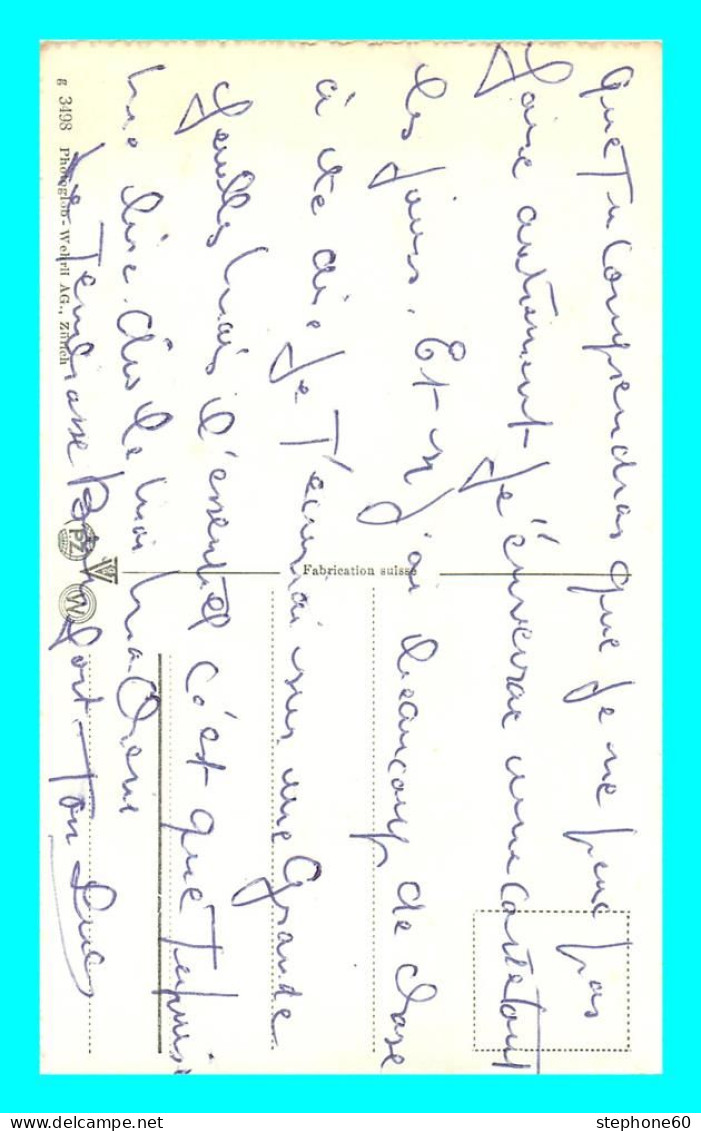 que Tu Comprendras que je ne peux pas
faire autrement je t'enverrai une carte tous
les jours. Et si j'ai beaucoup de chose
à te dire je T'écrirai sur une Grande
feuille mais l'essentiel c'est que Tu puisse
me lire. dis le moi ma
Je T'embrasse Bien fort. Ton Luc
g 3498 Photoglob-Wehrli AG., Zürich
Fabrication suisse
PZ
V
W
stephone60